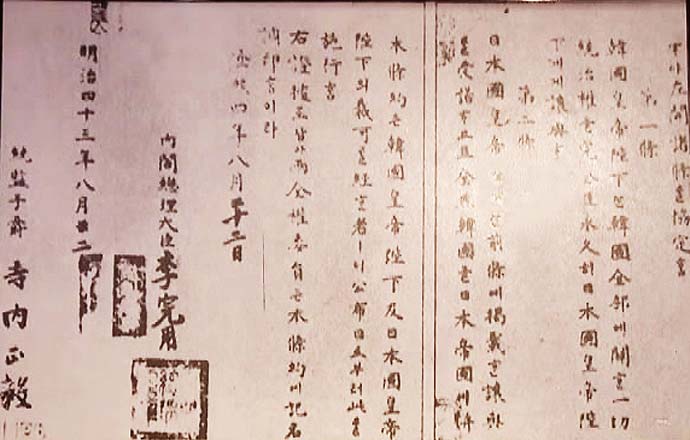 ᄒᆞ야左開諸條를協定홈
第一條
韓國皇帝陛下는韓國全部에關ᄒᆞᆫ一切
統治權을完全且永久히日本國皇帝陛
下에게讓與홈
第二條
日本國皇帝陛下는前條에揭載ᄒᆞᆫ讓與
를受諾ᄒᆞ고且全然韓國을日本帝國에倂
本條約은韓國皇帝陛下及日本國皇帝
陛下의裁可를經ᄒᆞᆫ者ㅣ니公布日로부터此를
施行홈
右證據로삼아兩全權委員은本條約에記名
調印홈이라
隆熙四年八月二十二日
內閣總理大臣李完用
明治四十三年八月廿二
統監子爵 寺內正毅